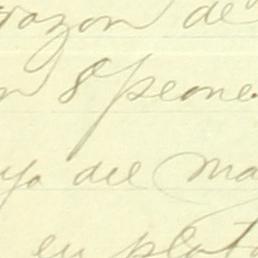 razon de
n 8 peone
yo del ma
en plat